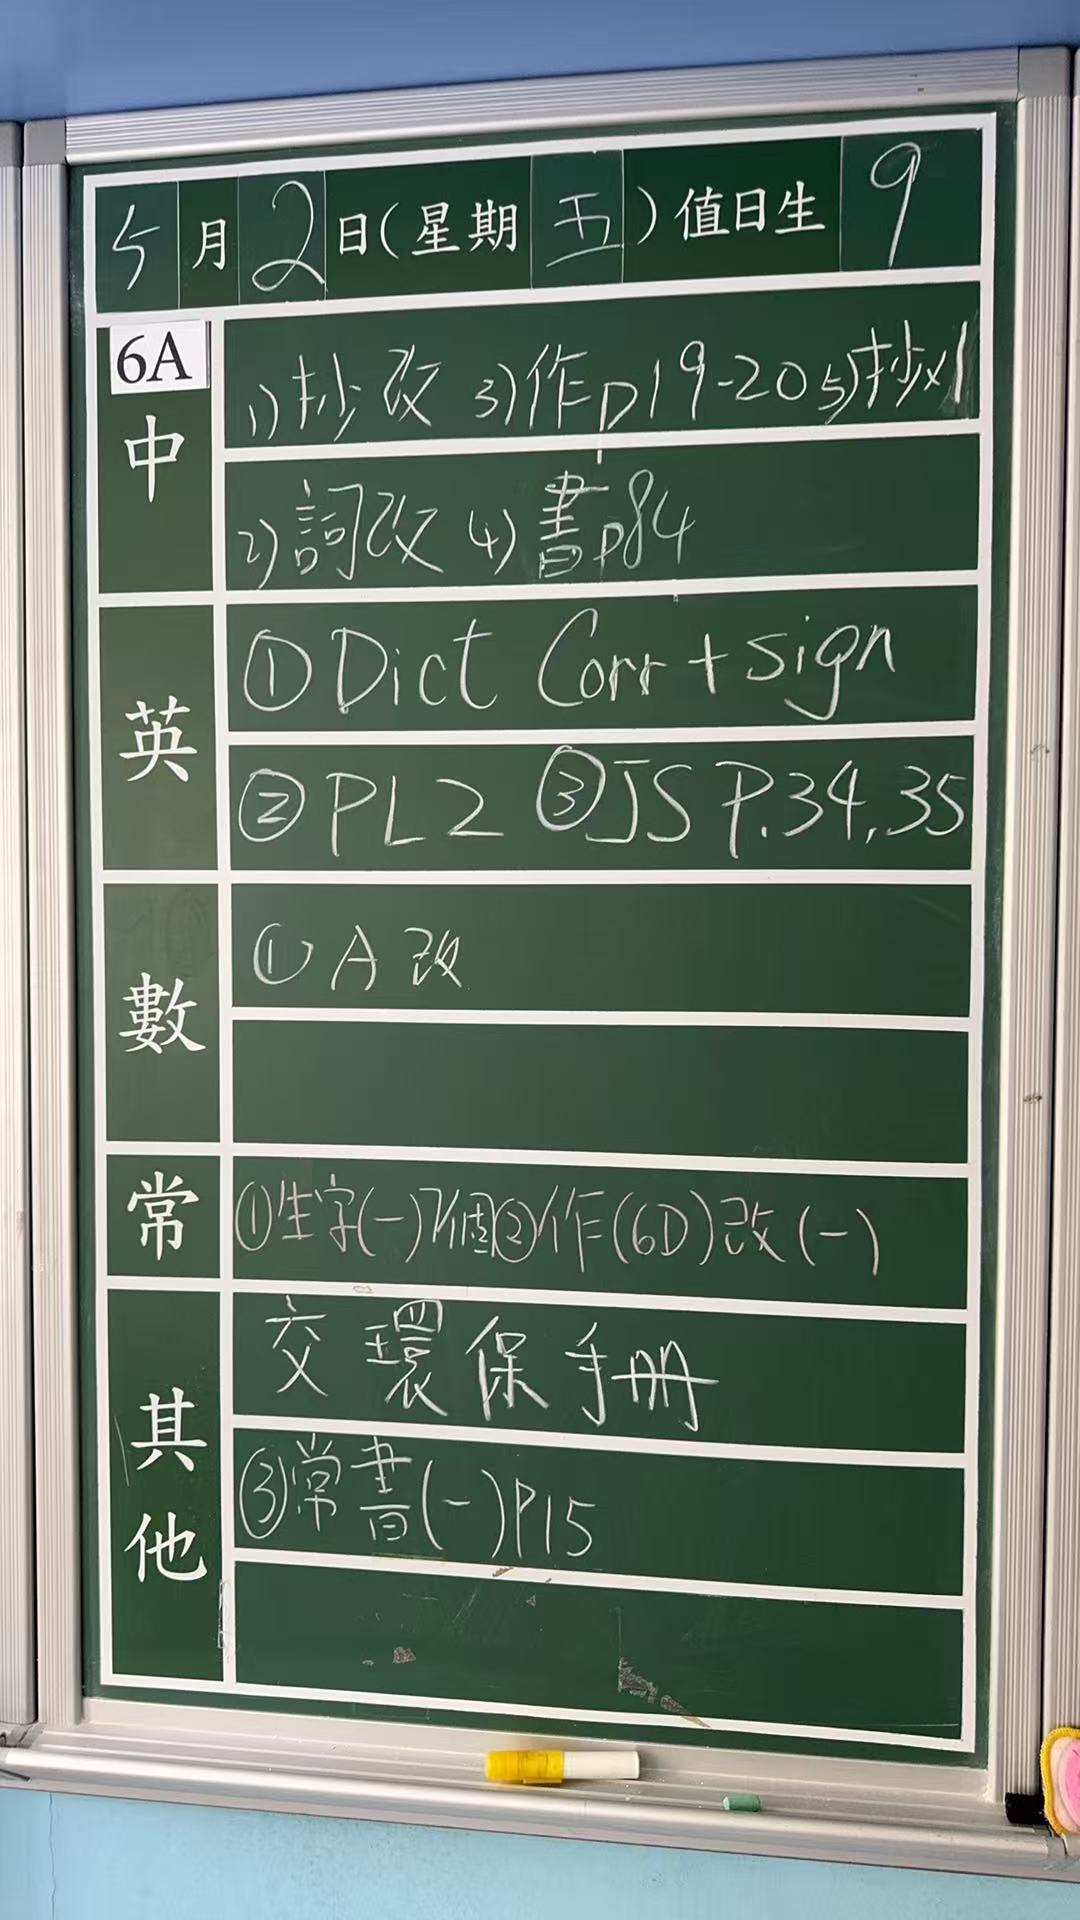 5月2日(星期五)值日生9
6A
中
1)抄改 3)作p19-20 5)抄x1
2)詞改 4)書p84
英
①Dict Corr+sign
②PL2 ③JS P.34,35
數
①A改
常
①生字(一)7個②作(6D)改(一)
其他
交環保手册
③常書(一)P15